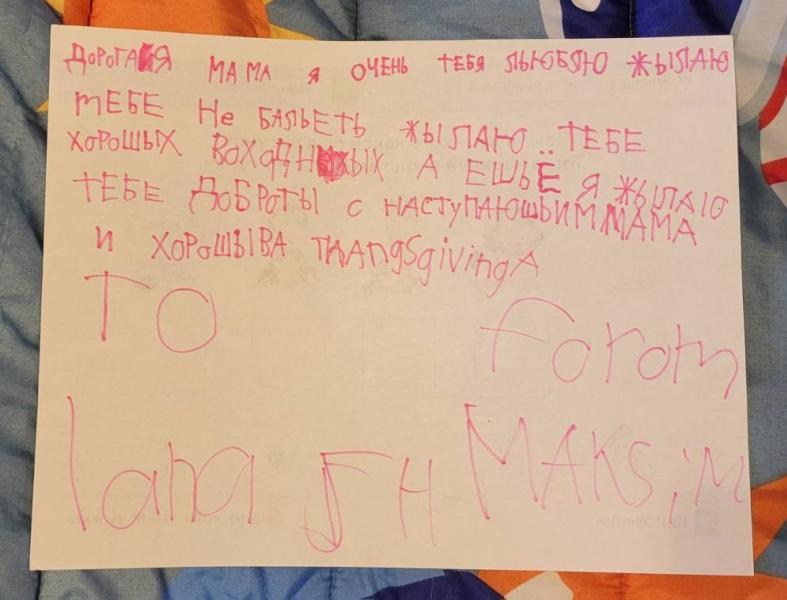 ДОРОГАЯ МАМА Я ОЧЕНЬ ТЕБЯ ЛЬЮБЛЮ ЖЫЛАЮ
ТЕБЕ Не БАЛЬЕТЬ ЖЫЛАЮ ТЕБЕ
ХОРОШЫХ ВОХОДНЫХ А ЕШЬЁ Я ЖЫЛАЮ
ТЕБЕ ДОБРОТЫ С НАСТУПАЮШЬИМ МАМА
И ХОРОШЫВА THANgSgivingA
TO forom
lana MAKSiM